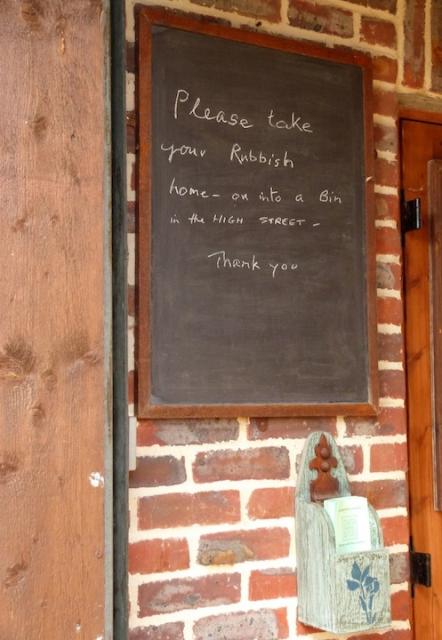 Please take
your Rubbish
home - or into a Bin
in the HIGH STREET -
Thank you